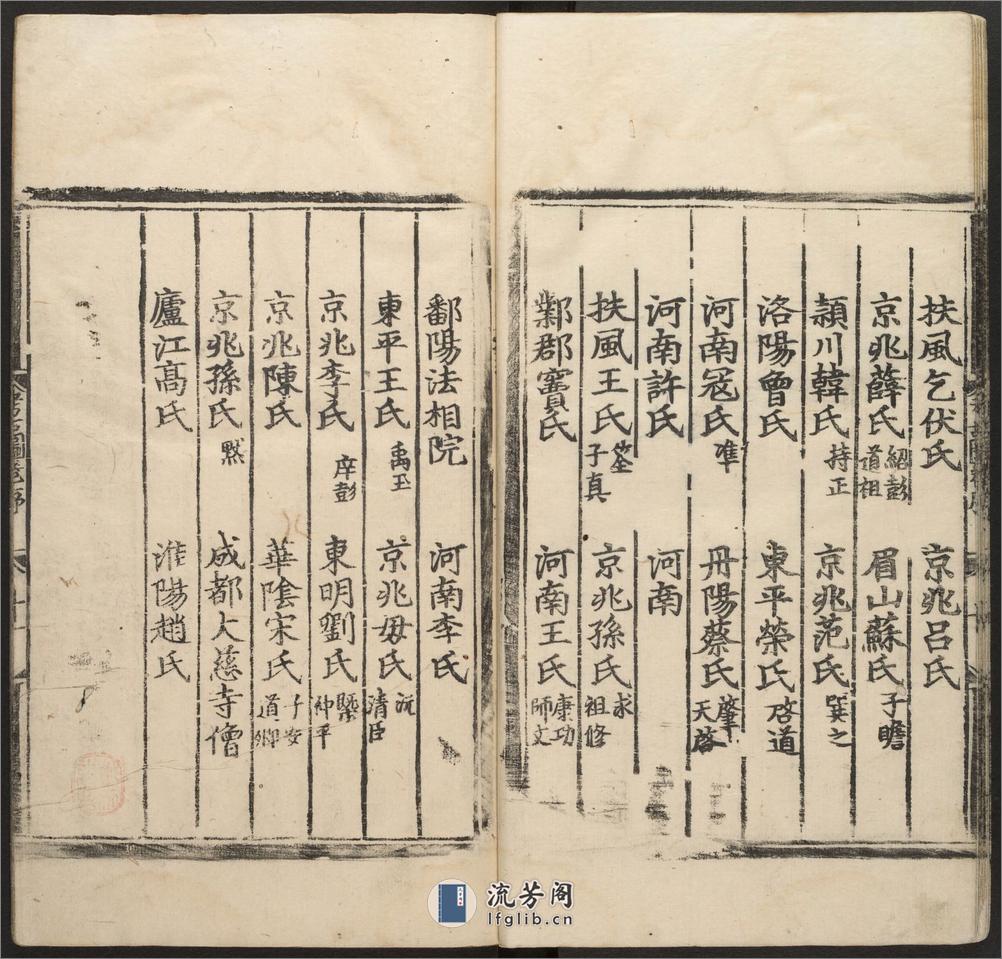 扶風乞伏氏　京兆呂氏
京兆薛氏紹彭道祖　眉山蘇氏子瞻
潁川韓氏持正　京兆范氏巽之
洛陽曾氏　東平榮氏啓道
河南冦氏準　丹陽蔡氏肇天啓
河南許氏　河南
扶風王氏子真　京兆孫氏求祖修
鄴郡竇氏　河南王氏康功師文
鄱陽法相院　河南李氏
東平王氏禹玉　京兆毋氏沇清臣
京兆李氏庠彭　東明劉氏仲平
京兆陳氏　華陰宋氏子安道卿
京兆孫氏默　成都大慈寺僧
廬江髙氏　淮陽趙氏
流芳阁
lfglib.cn